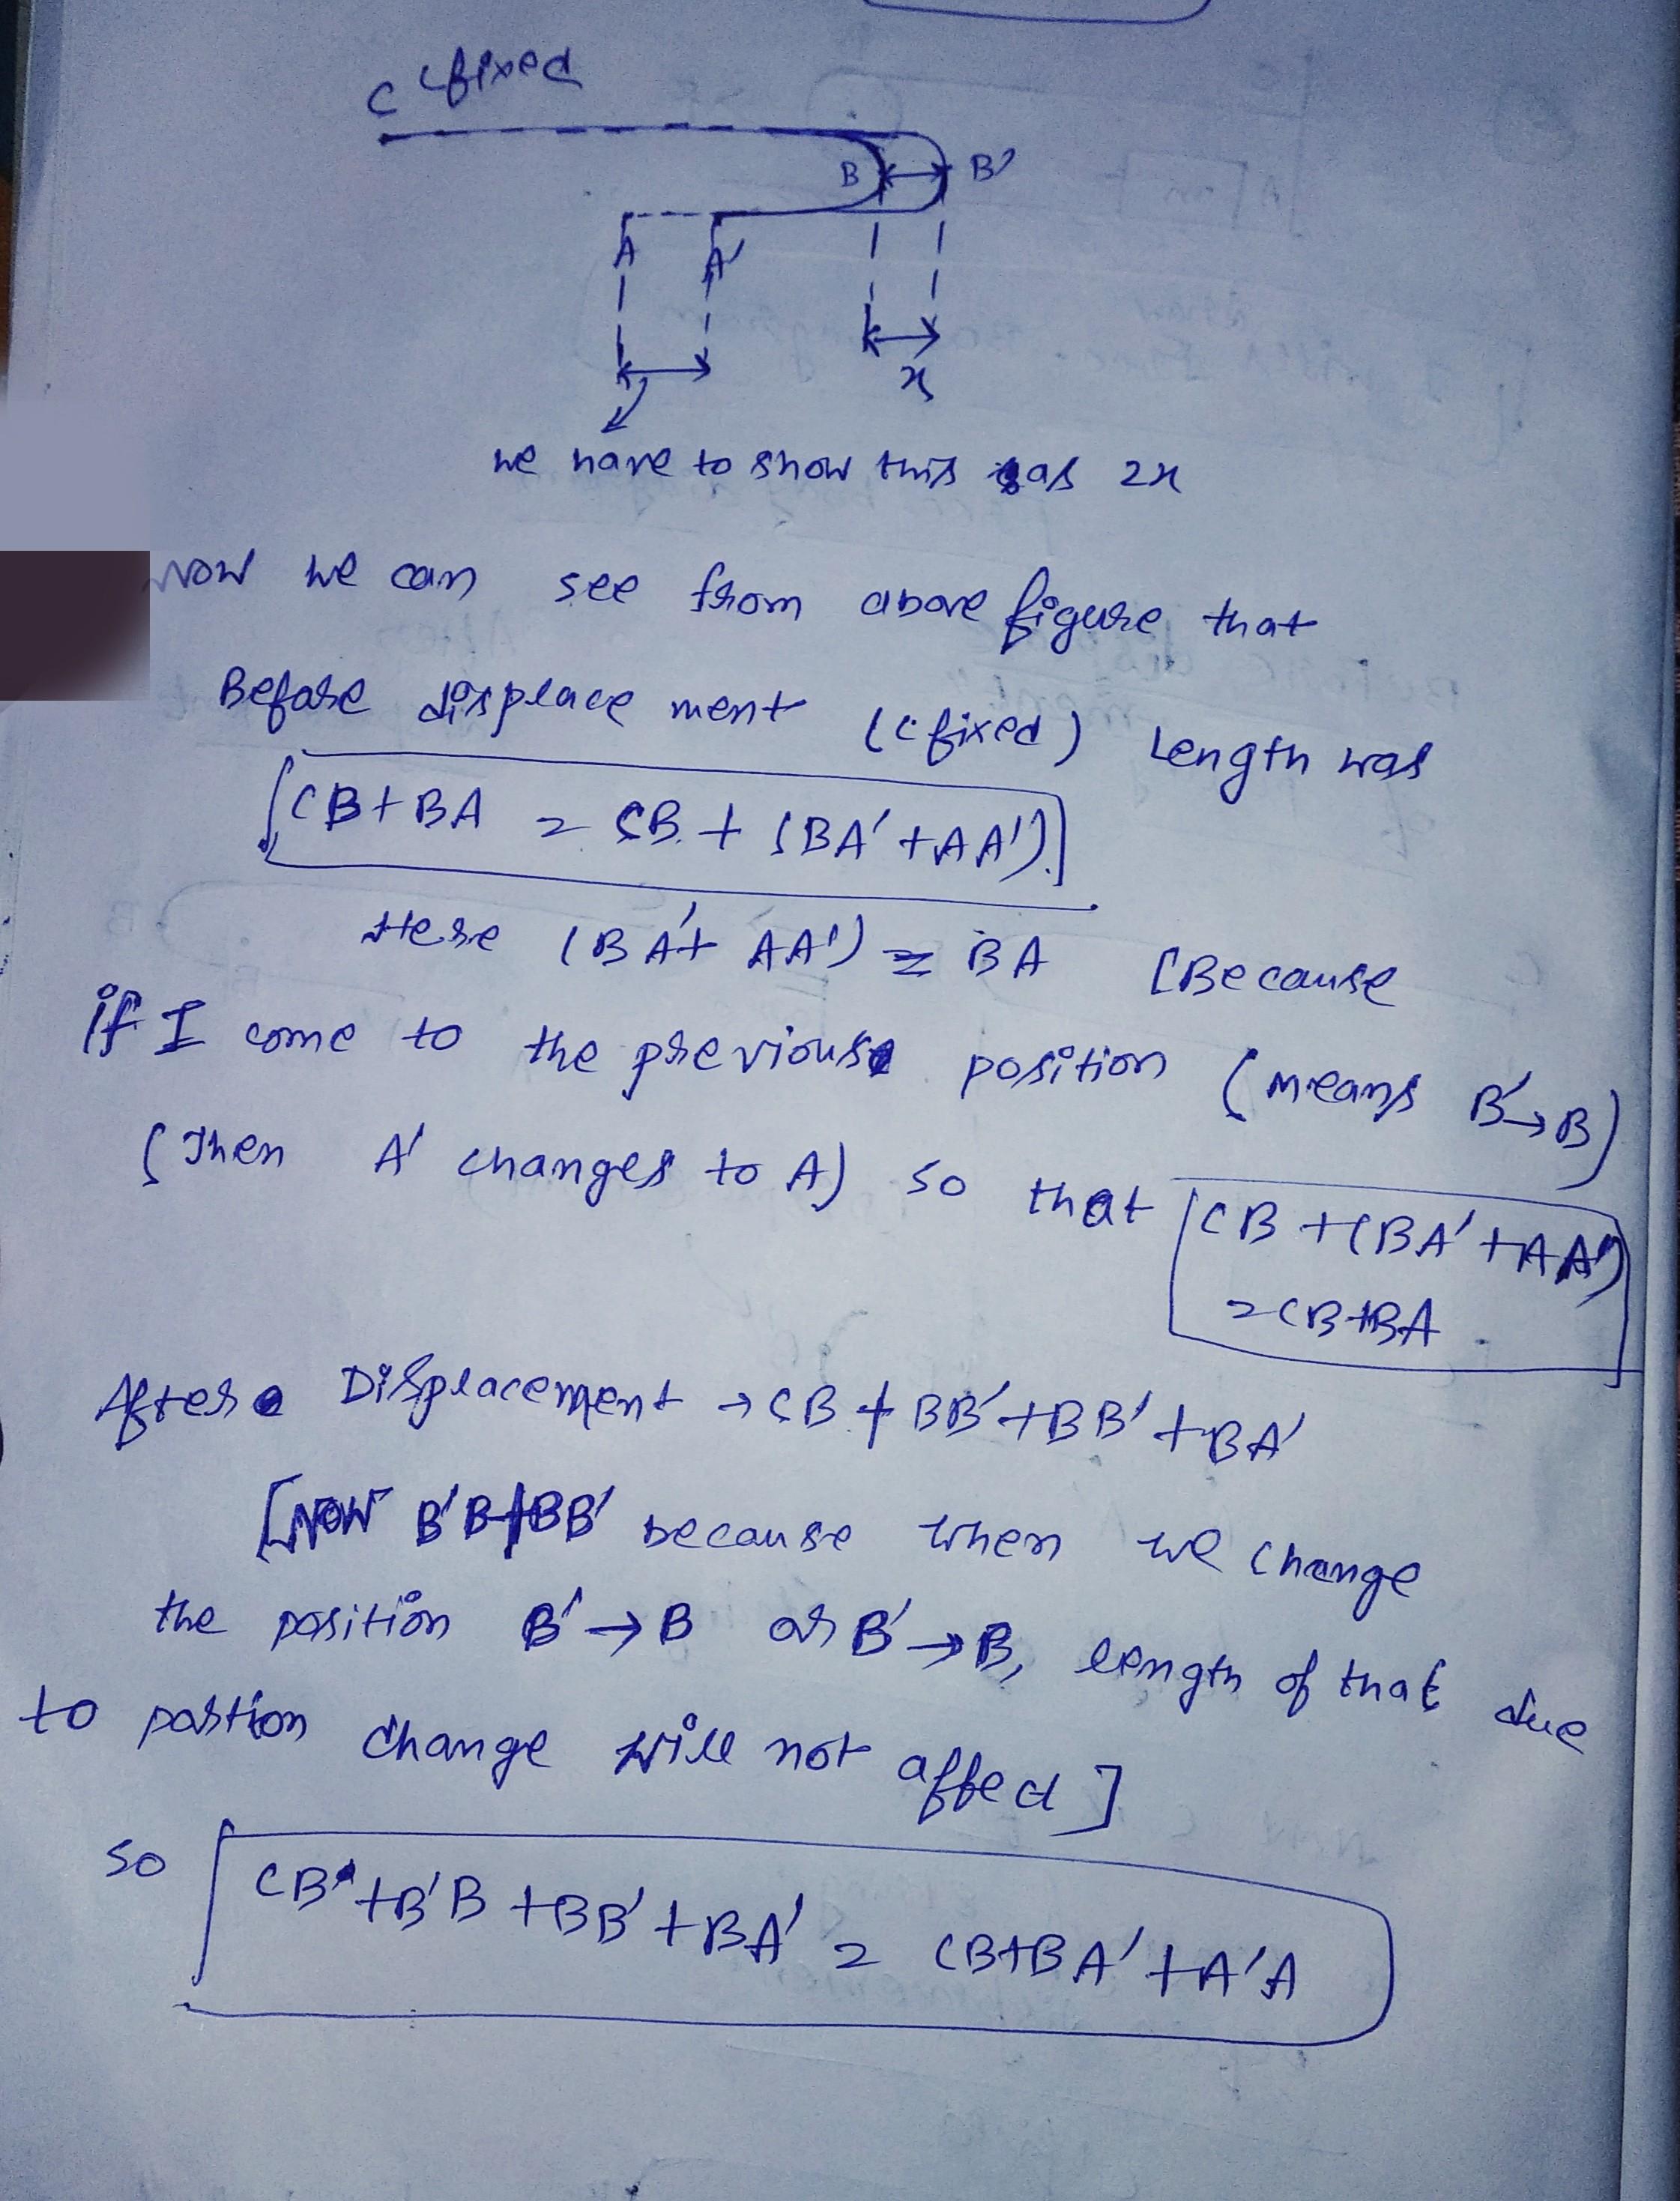 C fixed
B B'
A A'
x
we have to show this as 2x
Now we can see from above figure that
Before displace ment (C fixed) Length was
[CB+BA = CB + (BA' + AA').]
Here (BA'+ AA') = BA [Because
if I come to the previous position (means B'→B)
(Then A' changes to A) so that CB + (BA' + AA')
= CB+BA
After Displacement → CB + BB' + BB' + BA'
[NOW B'B+BB' because when we change
the position B' → B or B' → B, length of that due
to position change will not affed]
so CB + B'B + BB' + BA' = CB+BA' + A'A